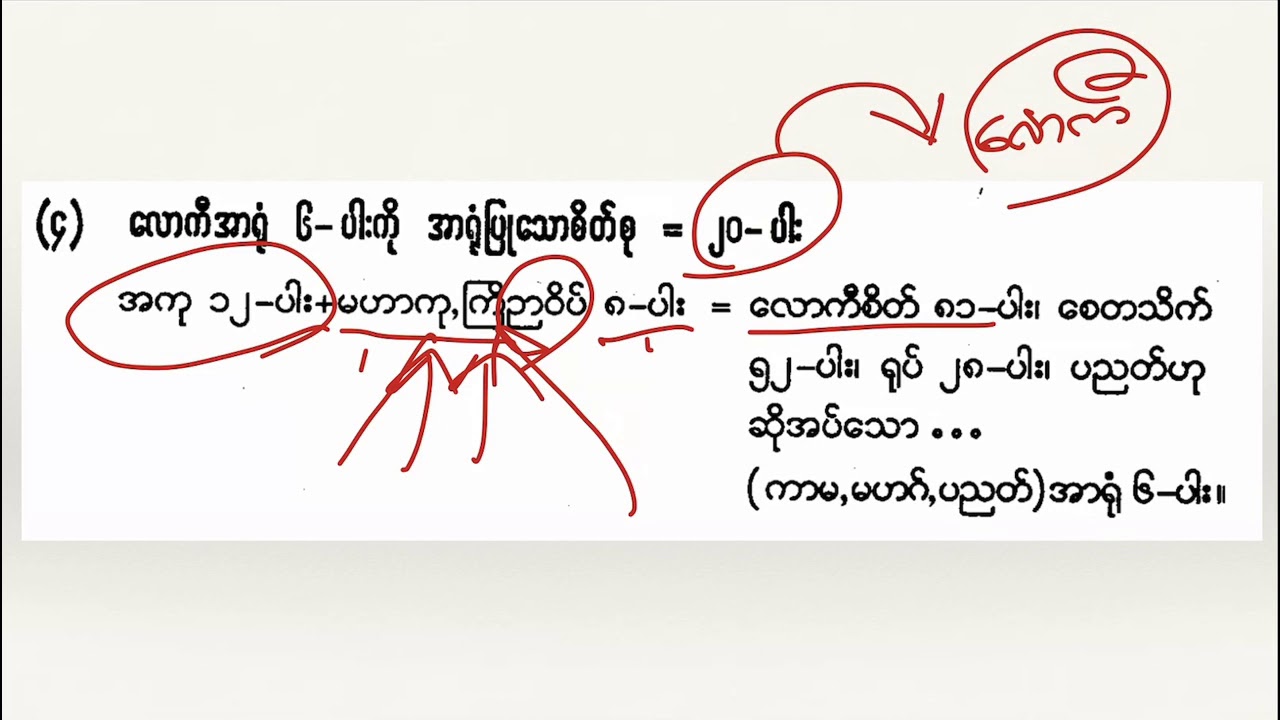 လောကီ
(၄) လောကီအာရုံ ၆–ပါးကို အာရုံပြုသောစိတ်စု = ၂၀–ပါး
အကု ၁၂–ပါး+မဟာကု,ကြိဉာဝိပ် ၈–ပါး = လောကီစိတ် ၈၁–ပါး၊ စေတသိက်
၅၂–ပါး၊ ရုပ် ၂၈–ပါး၊ ပညတ်ဟု
ဆိုအပ်သော ...
(ကာမ,မဟဂ်,ပညတ်)အာရုံ ၆–ပါး။